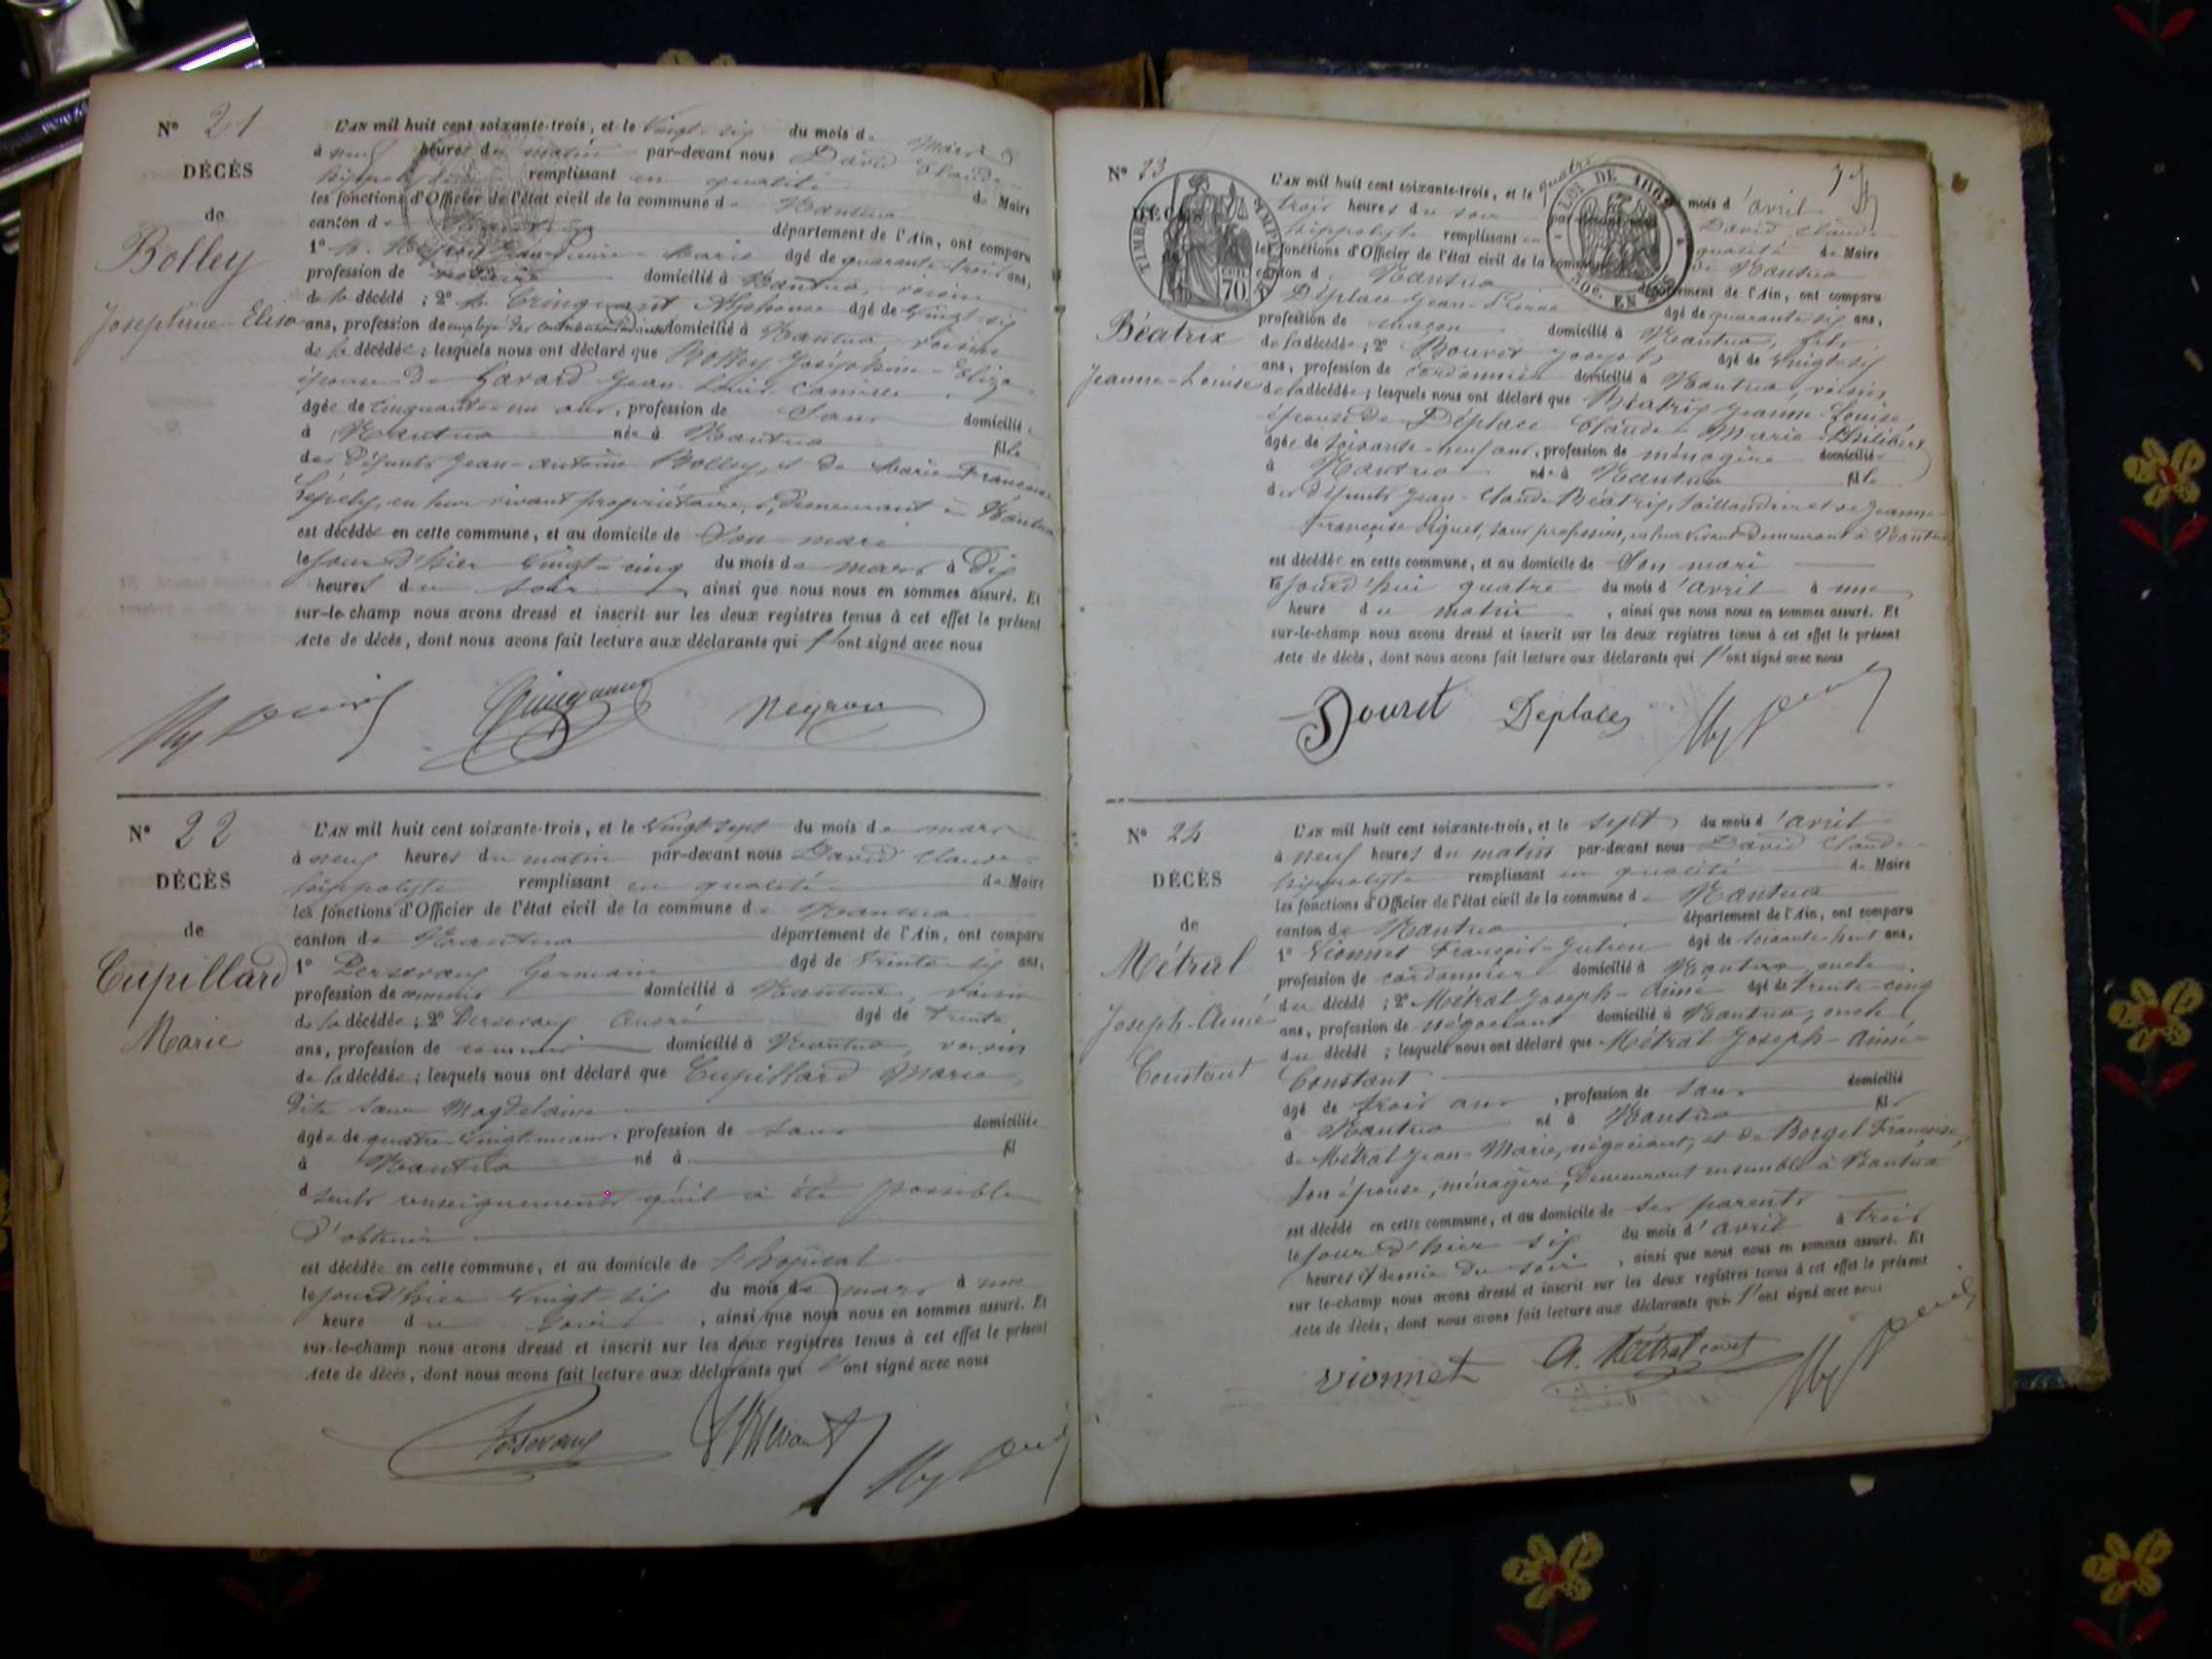 N° 21
DÉCÈS
de
Bolley
Josephine-Elisa
L'AN mil huit cent soixante-trois, et le vingt-six du mois de Mars
à neuf heures du matin par-devant nous David Claude-
hippolyte remplissant en qualité de Maire
les fonctions d'Officier de l'état civil de la commune de Nantua
canton de Nantua département de l'Ain, ont comparu
1° Jean-Pierre-Marie âgé de quarante-trois ans,
profession de domicilié à Nantua, voisin
de la décédé ; 2° Alphonse âgé de vingt-six
ans, profession de employé des domicilié à Nantua, voisin
de la décédée ; lesquels nous ont déclaré que Bolley Joséphine-Eliza
épouse de Gavard Jean-Louis-Camille
âgée de cinquante-un ans, profession de Sans domiciliée
à Nantua née à Nantua fille
des défunts Jean-Antoine Bolley, et de Marie-Françoise
en leur vivant propriétaires, demeurant à Nantua
est décédée en cette commune, et au domicile de Son mari
le jour d'hier vingt-cinq du mois de mars à Dix
heures du soir, ainsi que nous nous en sommes assuré. Et
sur-le-champ nous avons dressé et inscrit sur les deux registres tenus à cet effet le présent
Acte de décès, dont nous avons fait lecture aux déclarants qui l'ont signé avec nous
Neyron
N° 22
DÉCÈS
de
Cupillard
Marie
L'AN mil huit cent soixante-trois, et le vingt-sept du mois de mars
à neuf heures du matin par-devant nous David Claude-
hippolyte remplissant en qualité de Maire
les fonctions d'Officier de l'état civil de la commune de Nantua
canton de Nantua département de l'Ain, ont comparu
1° Germain âgé de trente-six ans,
profession de commis domicilié à Nantua, voisin
de la décédée ; 2° André âgé de trente
ans, profession de commis domicilié à Nantua, voisin
de la décédée ; lesquels nous ont déclaré que Cupillard Marie,
dite sœur Magdelaine
âgée de quatre-vingt-un ans, profession de sans domiciliée
à Nantua né à fil
d seuls renseignements qu'il a été possible
d'obtenir
est décédée en cette commune, et au domicile de l'hôpital
le jour d'hier vingt-six du mois de mars à une
heure du soir, ainsi que nous nous en sommes assuré. Et
sur-le-champ nous avons dressé et inscrit sur les deux registres tenus à cet effet le présent
Acte de décès, dont nous avons fait lecture aux déclarants qui l'ont signé avec nous
N° 23
DÉCÈS
Béatrix
Jeanne-Louise
TIMBRE IMPÉRIAL
70
LOI DE 1862
EN SUS
L'AN mil huit cent soixante-trois, et le quatre du mois d'avril
trois heures du soir par-devant nous David Claude-
hippolyte remplissant en qualité de Maire
les fonctions d'Officier de l'état civil de la commune de Nantua
canton d Nantua département de l'Ain, ont comparu
Déplace Jean-Pierre âgé de quarante-six ans,
profession de maçon domicilié à Nantua, fils
de la décédée ; 2° Bouret Joseph âgé de vingt-six
ans, profession de cordonnier domicilié à Nantua, voisin
de la décédée ; lesquels nous ont déclaré que Béatrix Jeanne-Louise,
épouse de Déplace Claude-Marie-Philibert
âgée de soixante-neuf ans, profession de ménagère domiciliée
à Nantua née à Nantua fille
des défunts Jean-Claude Béatrix, taillandier et de Jeanne-
Françoise sans profession, en leur vivant demeurant à Nantua
est décédée en cette commune, et au domicile de Son mari
le jourd'hui quatre du mois d'avril à une
heure du matin, ainsi que nous nous en sommes assuré. Et
sur-le-champ nous avons dressé et inscrit sur les deux registres tenus à cet effet le présent
Acte de décès, dont nous avons fait lecture aux déclarants qui l'ont signé avec nous
Bouret Deplace
N° 24
DÉCÈS
de
Métral
Joseph-Aimé
Constant
L'AN mil huit cent soixante-trois, et le sept du mois d'avril
à neuf heures du matin par-devant nous David Claude-
hippolyte remplissant en qualité de Maire
les fonctions d'Officier de l'état civil de la commune de Nantua
canton de Nantua département de l'Ain, ont comparu
1° Vionnet François-Julien âgé de soixante-huit ans,
profession de cordonnier domicilié à Nantua, oncle
du décédé ; 2° Métral Joseph-Aimé âgé de trente-cinq
ans, profession de négociant domicilié à Nantua, oncle
du décédé ; lesquels nous ont déclaré que Métral Joseph-Aimé-
Constant
âgé de trois ans, profession de sans domicilié
à Nantua né à Nantua fils
de Métral Jean-Marie, négociant, et de Borgel Françoise,
son épouse, ménagère, demeurant ensemble à Nantua
est décédé en cette commune, et au domicile de ses parents
le jour d'hier six du mois d'avril à trois
heures et demie du soir, ainsi que nous nous en sommes assuré. Et
sur le-champ nous avons dressé et inscrit sur les deux registres tenus à cet effet le présent
Acte de décès, dont nous avons fait lecture aux déclarants qui l'ont signé avec nous
Vionnet A. Métral